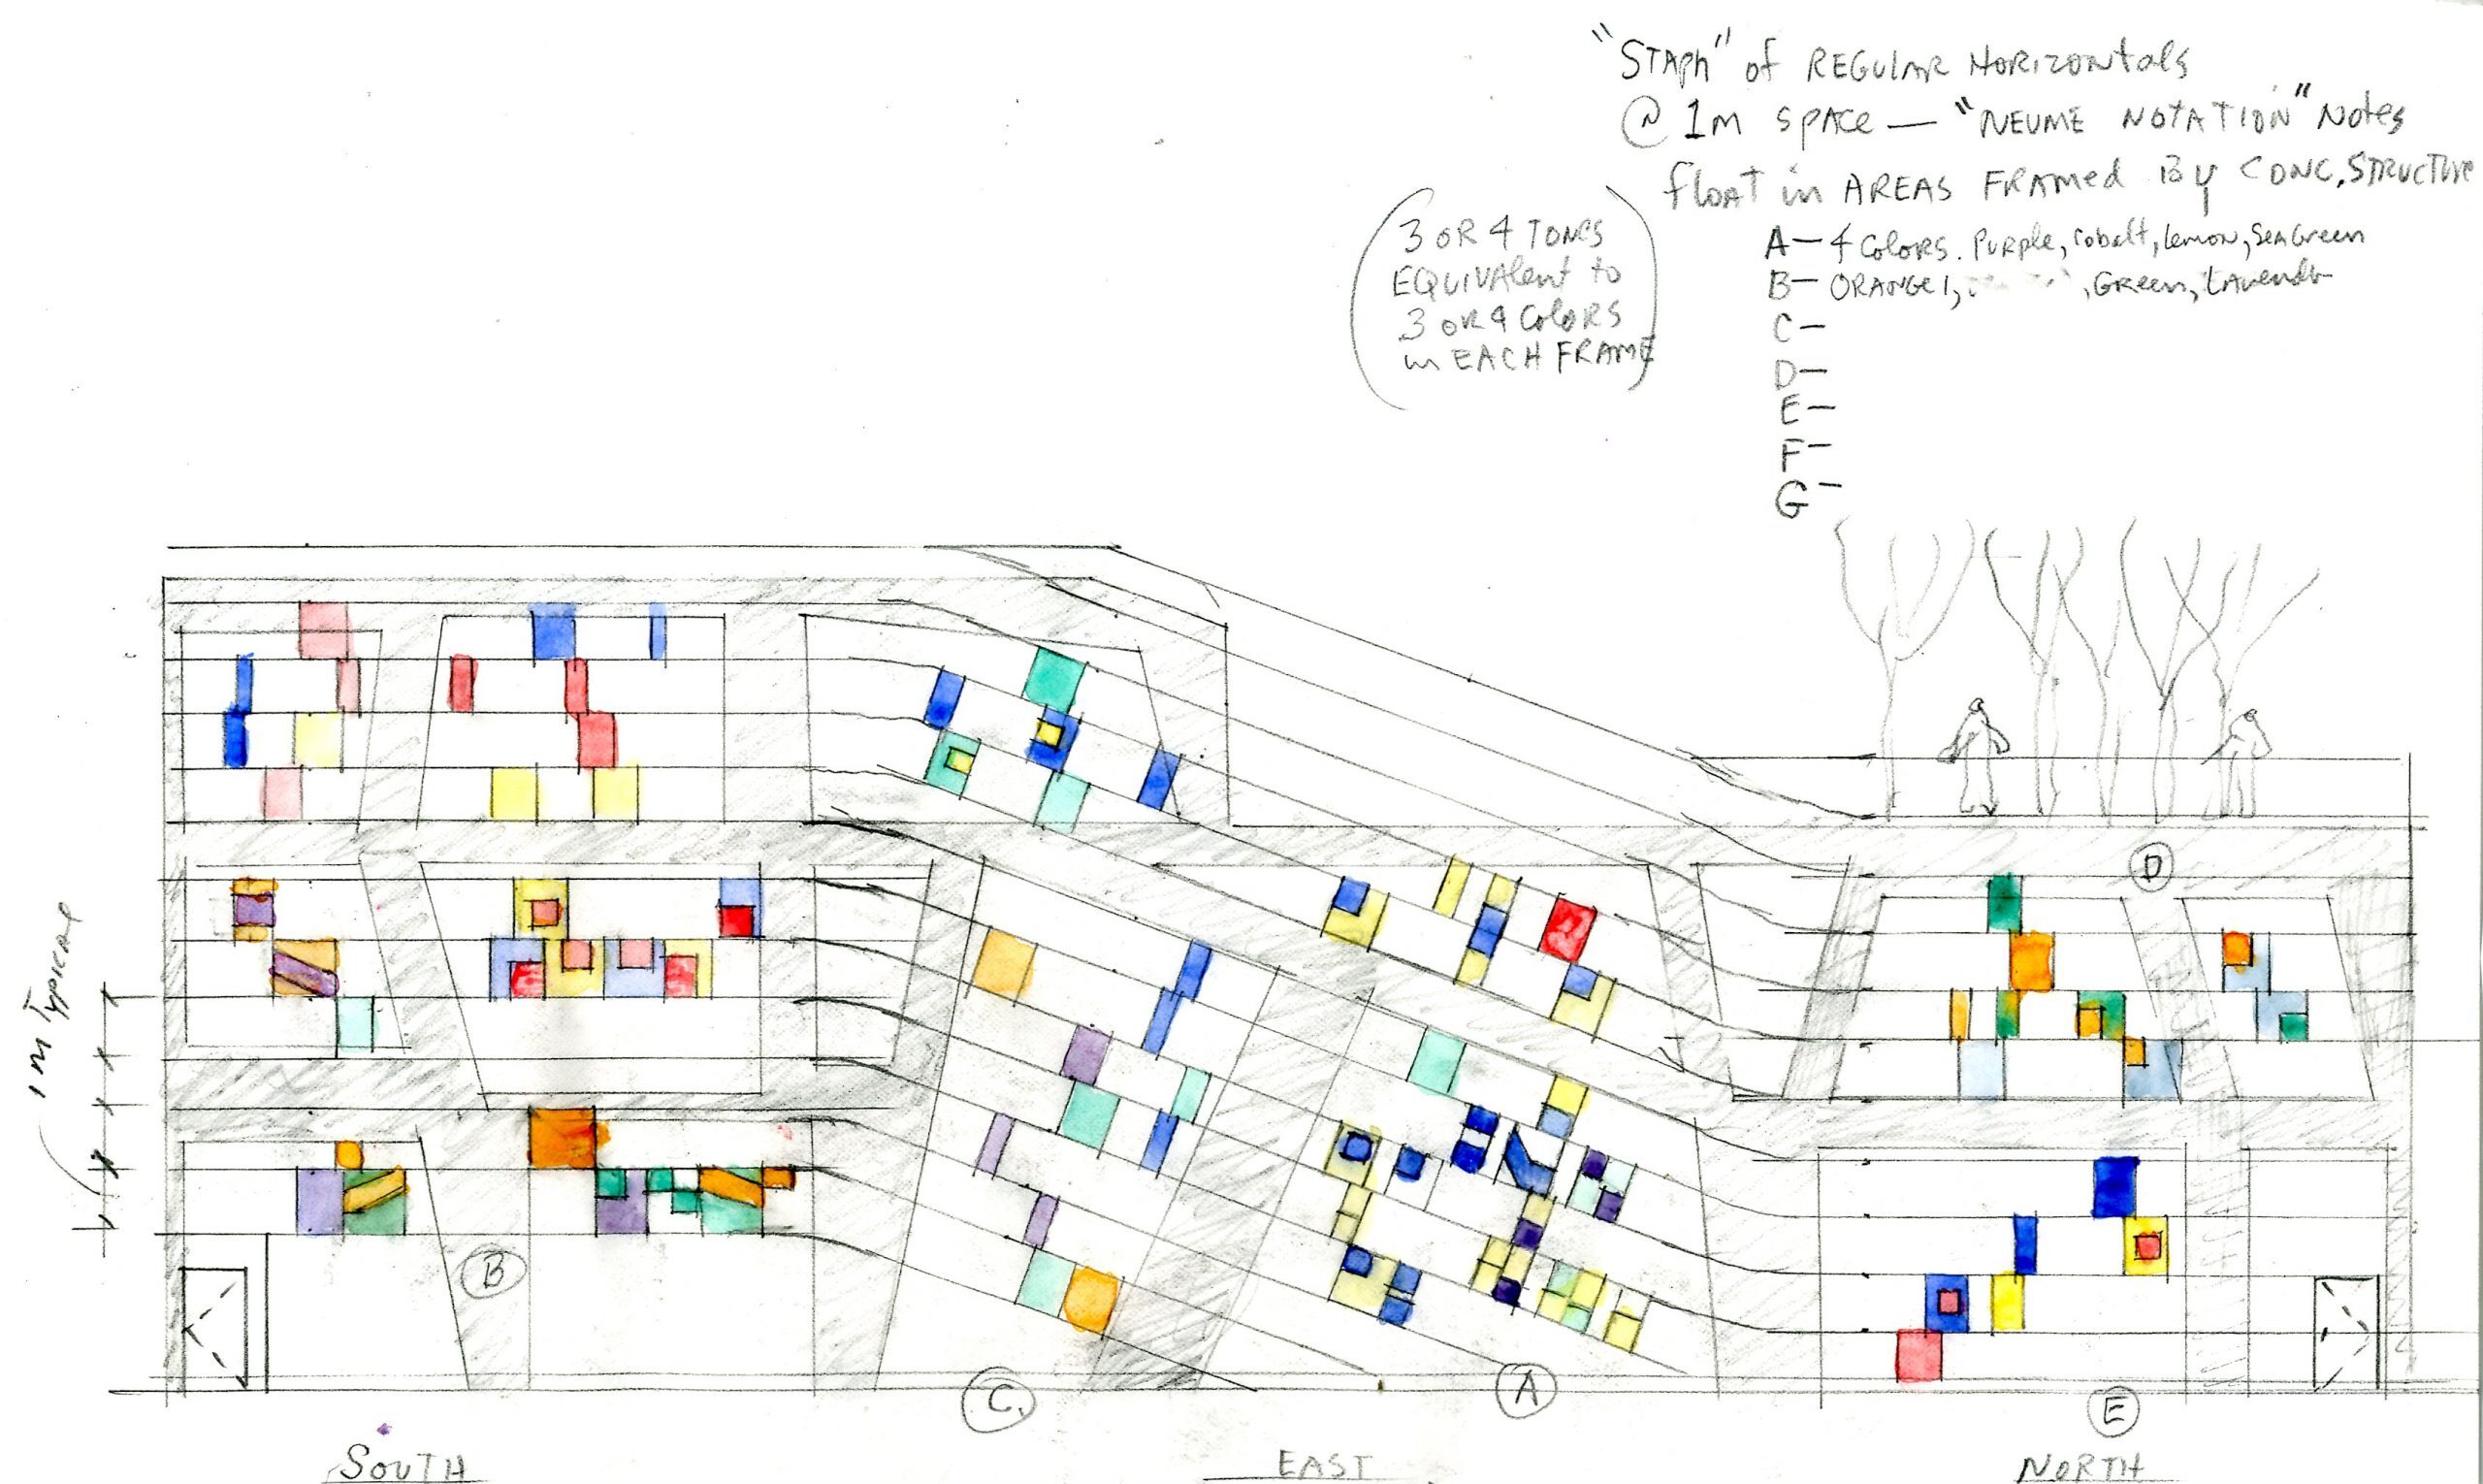 "STAPH" of REGULAR HORIZONTALS
@ 1M SPACE — "NEUME NOTATION" Notes
float in AREAS FRAMED BY CONC. STRUCTURE
3 OR 4 TONES
EQUIVALENT to
3 OR 4 COLORS
in EACH FRAME
A— 4 COLORS. PURPLE, Cobalt, lemon, SeaGreen
B— ORANGE 1, , Green, LAVENDR
C—
D—
E—
F—
G—
D
1M TYPICAL
B
C.
A
E
SOUTH
EAST
NORTH